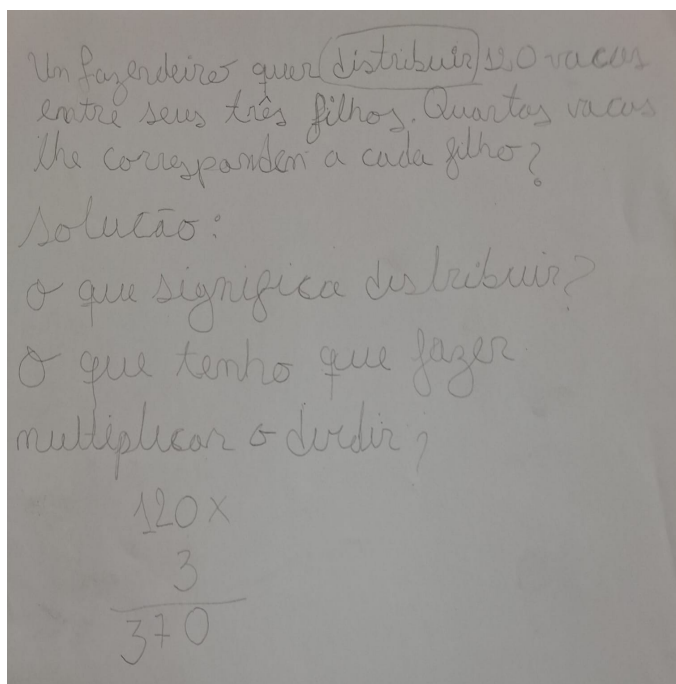 Un fazendeiro quer distribuir 120 vacas
entre seus três filhos. Quartas vacas
lhe correspanden a cada filho?
Solucão:
O que significa distribuir?
O que tenho que fazer
multiplicar o dirdir?
120 x
3
370